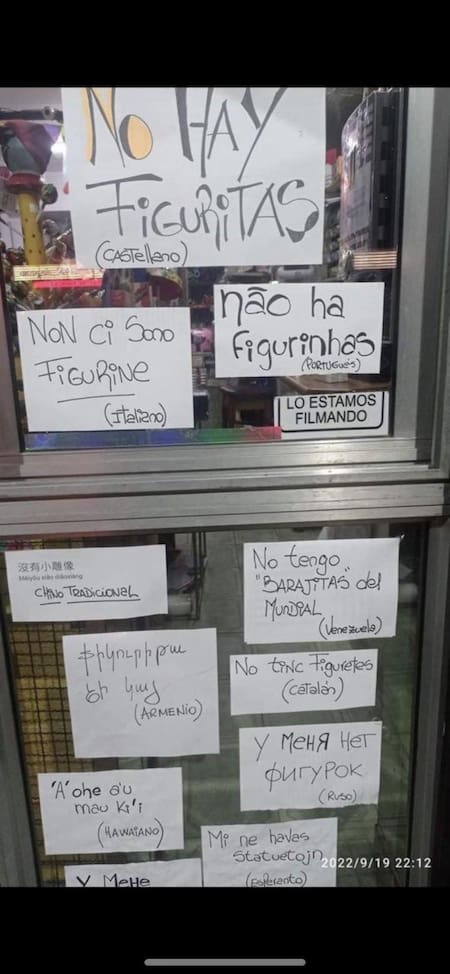 No HAY
FiGURiTAS
(CASTellano)
NoN Ci Sono
FiGURiNe
(Italiano)
não ha
figurinhas
(PORTUGUéS)
LO ESTAMOS
FILMANDO
沒有小雕像
Méiyǒu xiǎo diāoxiàng
CHiNo TRADiCioNAL
No tengo
"BARAJiTAS del
MUNDiAL
(Venezuela)
ֆիկուրիթա
չի կայ
(ARMENiO)
No tinc Figuretes
(Catalán)
У МеНЯ НеТ
ФИГУРОК
(RUSO)
'A'ohe a'u
mau Ki'i
(HAWAiANO)
Mi ne havas
Statuetojn
(Esperanto)
У Мене
2022/9/19 22:12